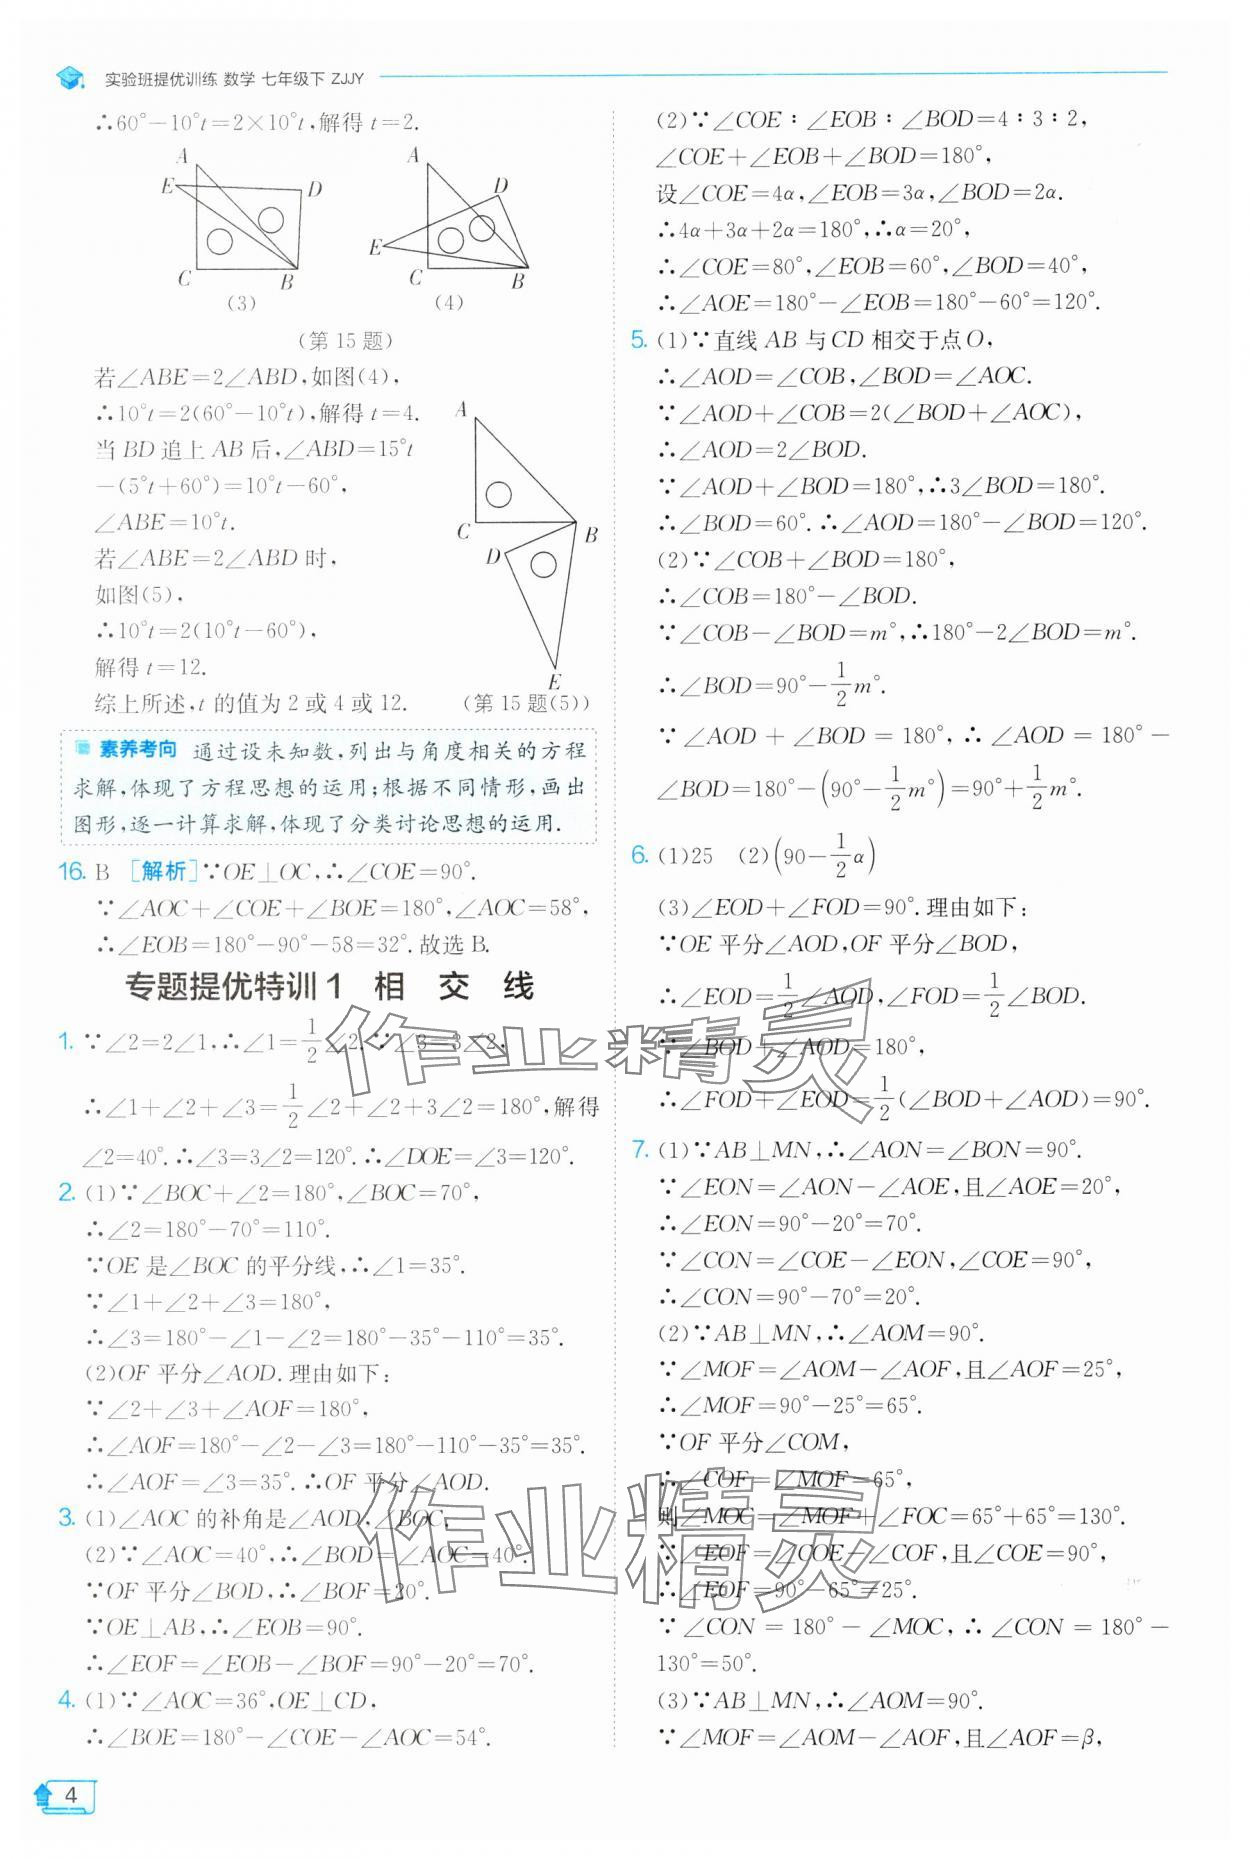 实验班提优训练 数学 七年级下 ZJJY
∴60°－10°t＝2×10°t,解得t＝2.
A
E
D
C
B
(3)
A
D
E
C
B
(4)
(第15题)
若∠ABE＝2∠ABD,如图(4),
∴10°t＝2(60°－10°t),解得t＝4.
当BD追上AB后,∠ABD＝15°t
－(5°t＋60°)＝10°t－60°,
∠ABE＝10°t.
若∠ABE＝2∠ABD时,
如图(5),
∴10°t＝2(10°t－60°),
解得t＝12.
综上所述,t的值为2或4或12.
A
C
B
D
E
(第15题(5))
素养考向 通过设未知数,列出与角度相关的方程
求解,体现了方程思想的运用;根据不同情形,画出
图形,逐一计算求解,体现了分类讨论思想的运用.
16. B [解析]∵OE⊥OC,∴∠COE＝90°.
∵∠AOC＋∠COE＋∠BOE＝180°,∠AOC＝58°,
∴∠EOB＝180°－90°－58＝32°.故选B.
专题提优特训1 相 交 线
1. ∵∠2＝2∠1,∴∠1＝1/2∠2.∵∠3＝3∠2,
∴∠1＋∠2＋∠3＝1/2∠2＋∠2＋3∠2＝180°,解得
∠2＝40°.∴∠3＝3∠2＝120°.∴∠DOE＝∠3＝120°.
2. (1)∵∠BOC＋∠2＝180°,∠BOC＝70°,
∴∠2＝180°－70°＝110°.
∵OE是∠BOC的平分线,∴∠1＝35°.
∵∠1＋∠2＋∠3＝180°,
∴∠3＝180°－∠1－∠2＝180°－35°－110°＝35°.
(2)OF平分∠AOD.理由如下:
∵∠2＋∠3＋∠AOF＝180°,
∴∠AOF＝180°－∠2－∠3＝180°－110°－35°＝35°.
∴∠AOF＝∠3＝35°.∴OF平分∠AOD.
3. (1)∠AOC的补角是∠AOD,∠BOC,
(2)∵∠AOC＝40°,∴∠BOD＝∠AOC＝40°.
∵OF平分∠BOD,∴∠BOF＝20°.
∵OE⊥AB,∴∠EOB＝90°.
∴∠EOF＝∠EOB－∠BOF＝90°－20°＝70°.
4. (1)∵∠AOC＝36°,OE⊥CD,
∴∠BOE＝180°－∠COE－∠AOC＝54°.
4
(2)∵∠COE∶∠EOB∶∠BOD＝4∶3∶2,
∠COE＋∠EOB＋∠BOD＝180°,
设∠COE＝4α,∠EOB＝3α,∠BOD＝2α.
∴4α＋3α＋2α＝180°,∴α＝20°,
∴∠COE＝80°,∠EOB＝60°,∠BOD＝40°,
∴∠AOE＝180°－∠EOB＝180°－60°＝120°.
5. (1)∵直线AB与CD相交于点O,
∴∠AOD＝∠COB,∠BOD＝∠AOC.
∵∠AOD＋∠COB＝2(∠BOD＋∠AOC),
∴∠AOD＝2∠BOD.
∵∠AOD＋∠BOD＝180°,∴3∠BOD＝180°.
∴∠BOD＝60°.∴∠AOD＝180°－∠BOD＝120°.
(2)∵∠COB＋∠BOD＝180°,
∴∠COB＝180°－∠BOD.
∵∠COB－∠BOD＝m°,∴180°－2∠BOD＝m°.
∴∠BOD＝90°－1/2m°.
∵∠AOD＋∠BOD＝180°,∴∠AOD＝180°－
∠BOD＝180°－(90°－1/2m°)＝90°＋1/2m°.
6. (1)25 (2)(90－1/2α)
(3)∠EOD＋∠FOD＝90°.理由如下:
∵OE平分∠AOD,OF平分∠BOD,
∴∠EOD＝1/2∠AOD,∠FOD＝1/2∠BOD.
∵∠BOD＋∠AOD＝180°,
∴∠FOD＋∠EOD＝1/2(∠BOD＋∠AOD)＝90°.
7. (1)∵AB⊥MN,∴∠AON＝∠BON＝90°.
∵∠EON＝∠AON－∠AOE,且∠AOE＝20°,
∴∠EON＝90°－20°＝70°.
∵∠CON＝∠COE－∠EON,∠COE＝90°,
∴∠CON＝90°－70°＝20°.
(2)∵AB⊥MN,∴∠AOM＝90°.
∵∠MOF＝∠AOM－∠AOF,且∠AOF＝25°,
∴∠MOF＝90°－25°＝65°.
∵OF平分∠COM,
∴∠COF＝∠MOF＝65°,
则∠MOC＝∠MOF＋∠FOC＝65°＋65°＝130°.
∵∠EOF＝∠COE－∠COF,且∠COE＝90°,
∴∠EOF＝90°－65°＝25°.
∵∠CON＝180°－∠MOC,∴∠CON＝180°－
130°＝50°.
(3)∵AB⊥MN,∴∠AOM＝90°.
∵∠MOF＝∠AOM－∠AOF,且∠AOF＝β,
作业精灵
作业精灵